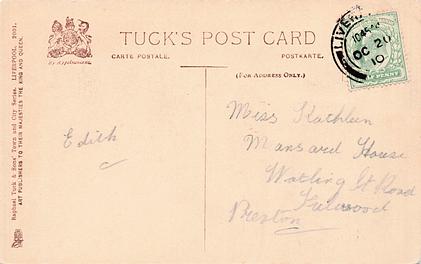 TUCK'S POST CARD
By Appointment.
CARTE POSTALE.
POSTKARTE.
(FOR ADDRESS ONLY.)
LIVER
1045
OC 20
10
PENNY
Raphael Tuck & Sons' Town and City Series. LIVERPOOL. 2001.
ART PUBLISHERS TO THEIR MAJESTIES THE KING AND QUEEN.
Edith
Miss Kathleen
Mansard House
Watling St Road
Fulwood
Preston